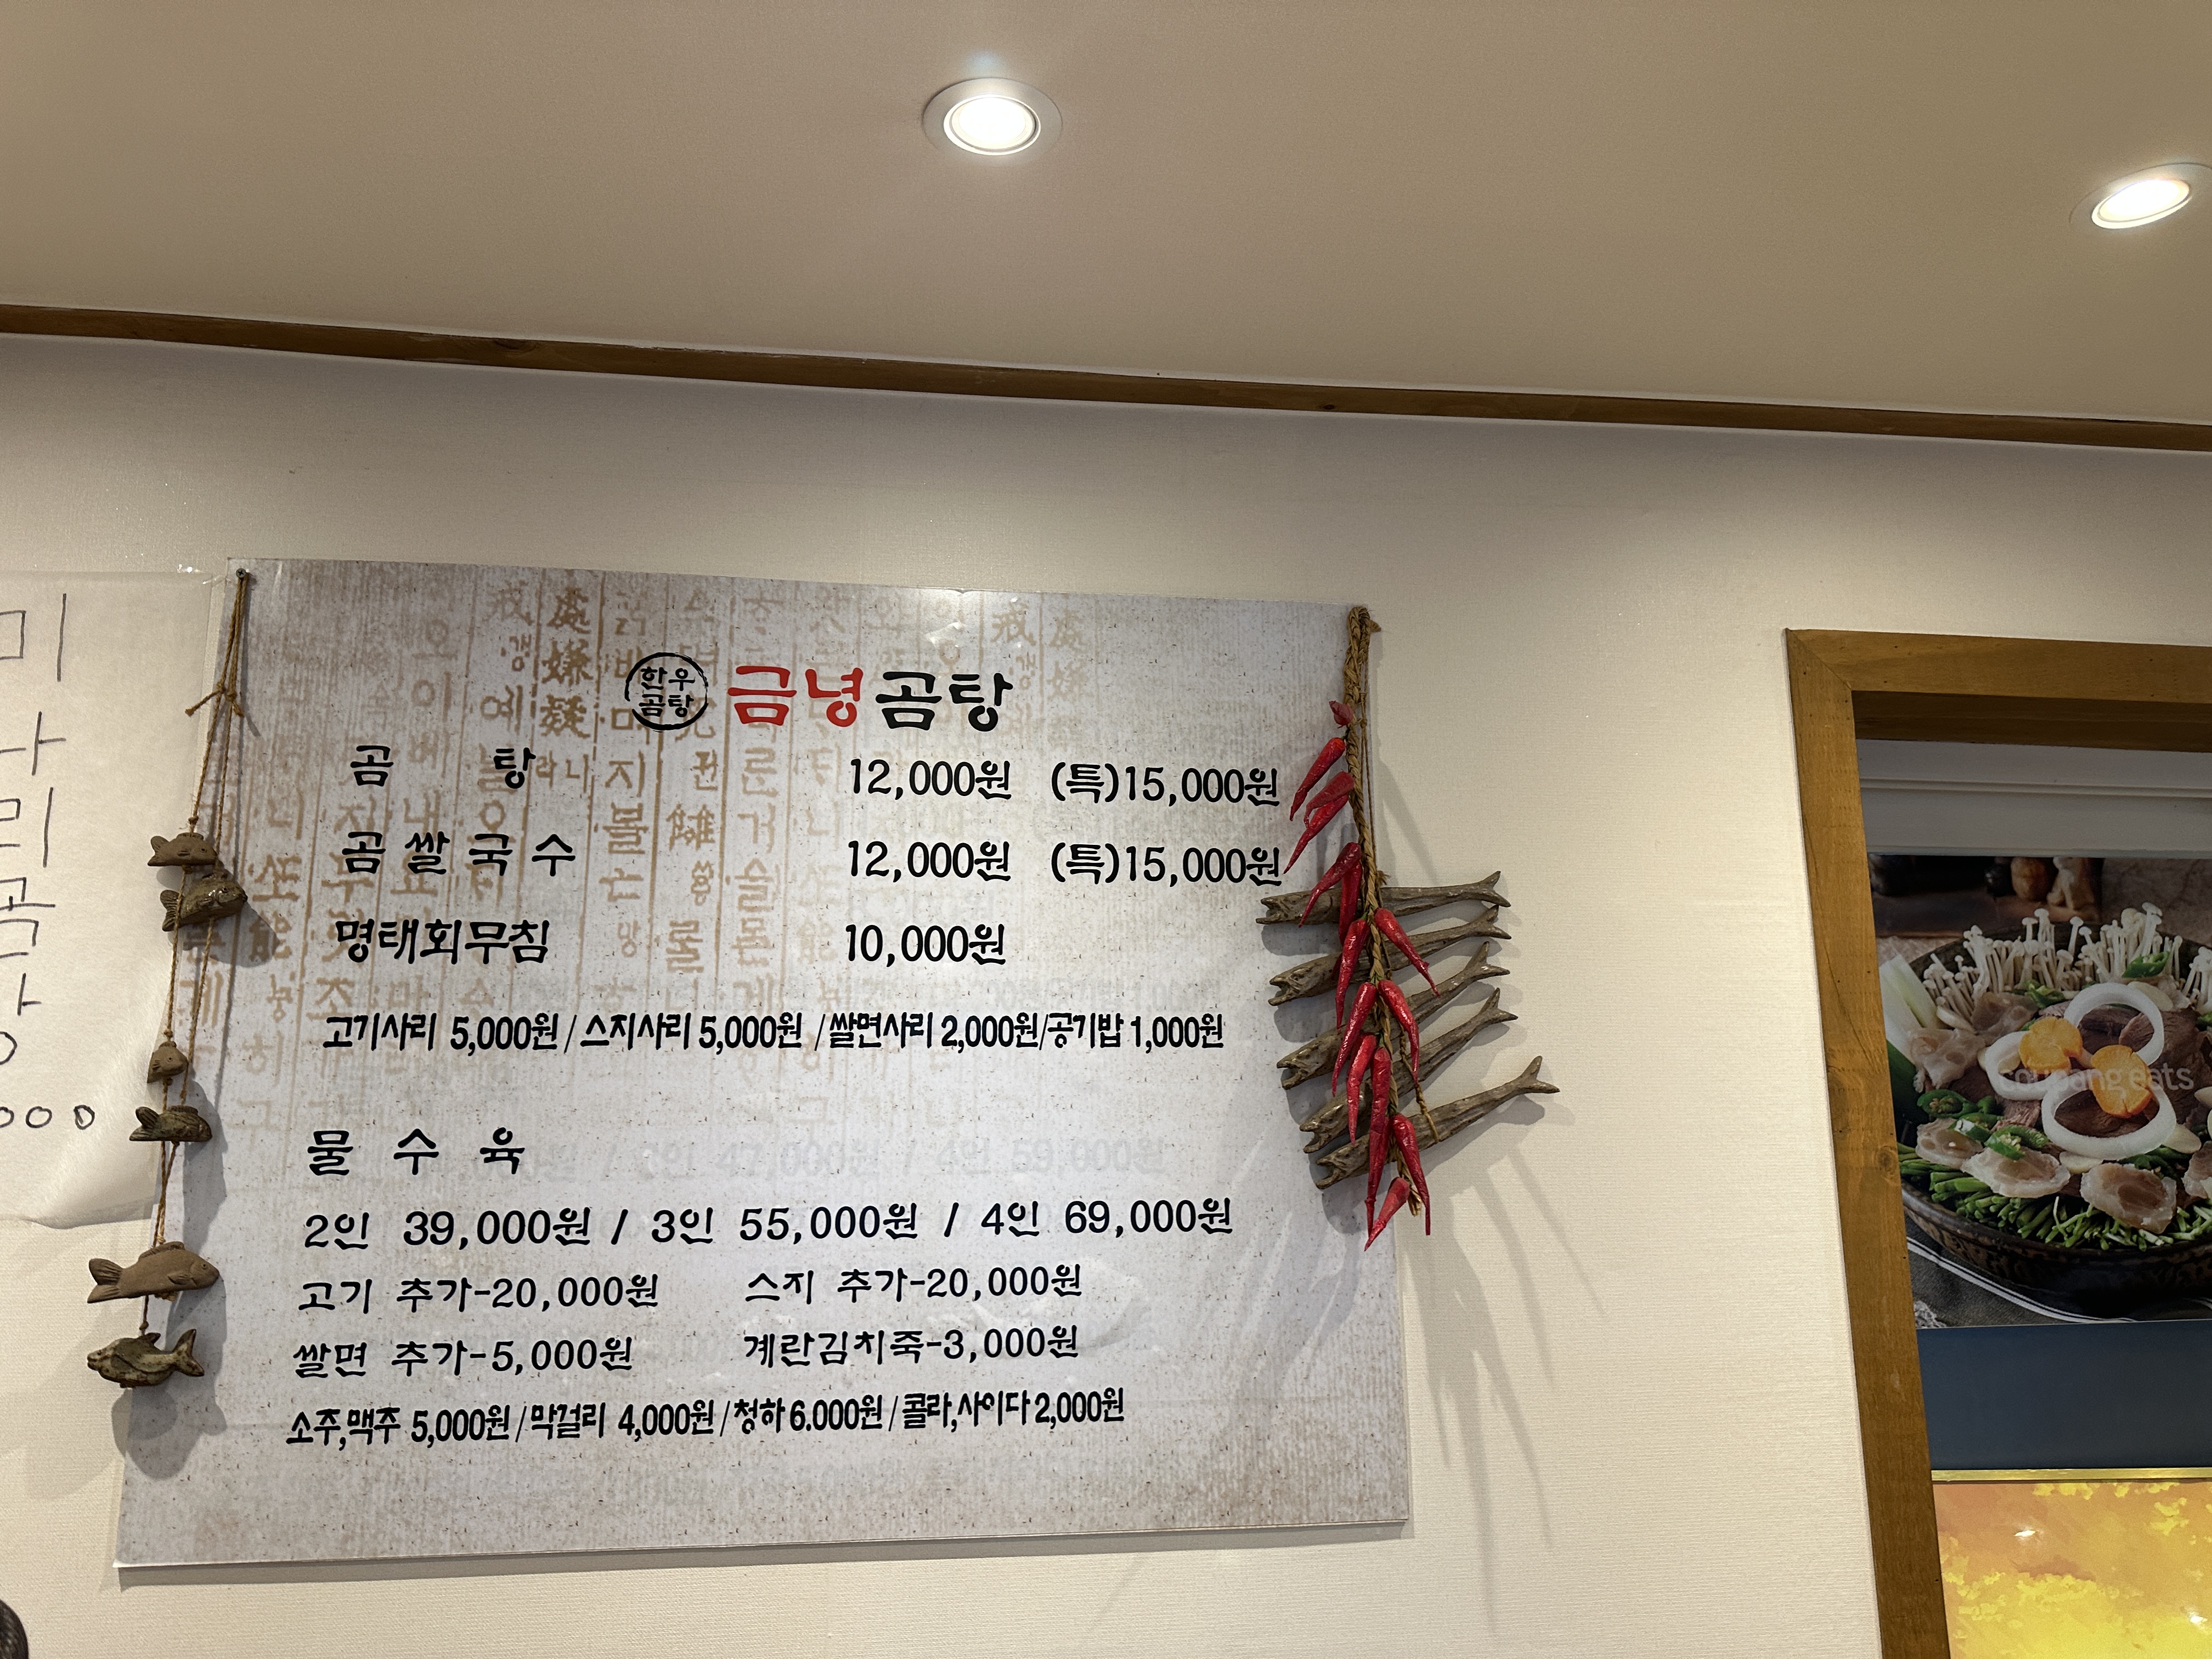 한우
곰탕
금녕곰탕
곰탕 12,000원 (특)15,000원
곰쌀국수 12,000원 (특)15,000원
명태회무침 10,000원
고기사리 5,000원/스지사리 5,000원/쌀면사리 2,000원/공기밥 1,000원
물수육
2인 39,000원 / 3인 55,000원 / 4인 69,000원
고기 추가-20,000원 스지 추가-20,000원
쌀면 추가-5,000원 계란김치죽-3,000원
소주,맥주 5,000원/막걸리 4,000원/청하 6.000원/콜라,사이다 2,000원
coupang eats